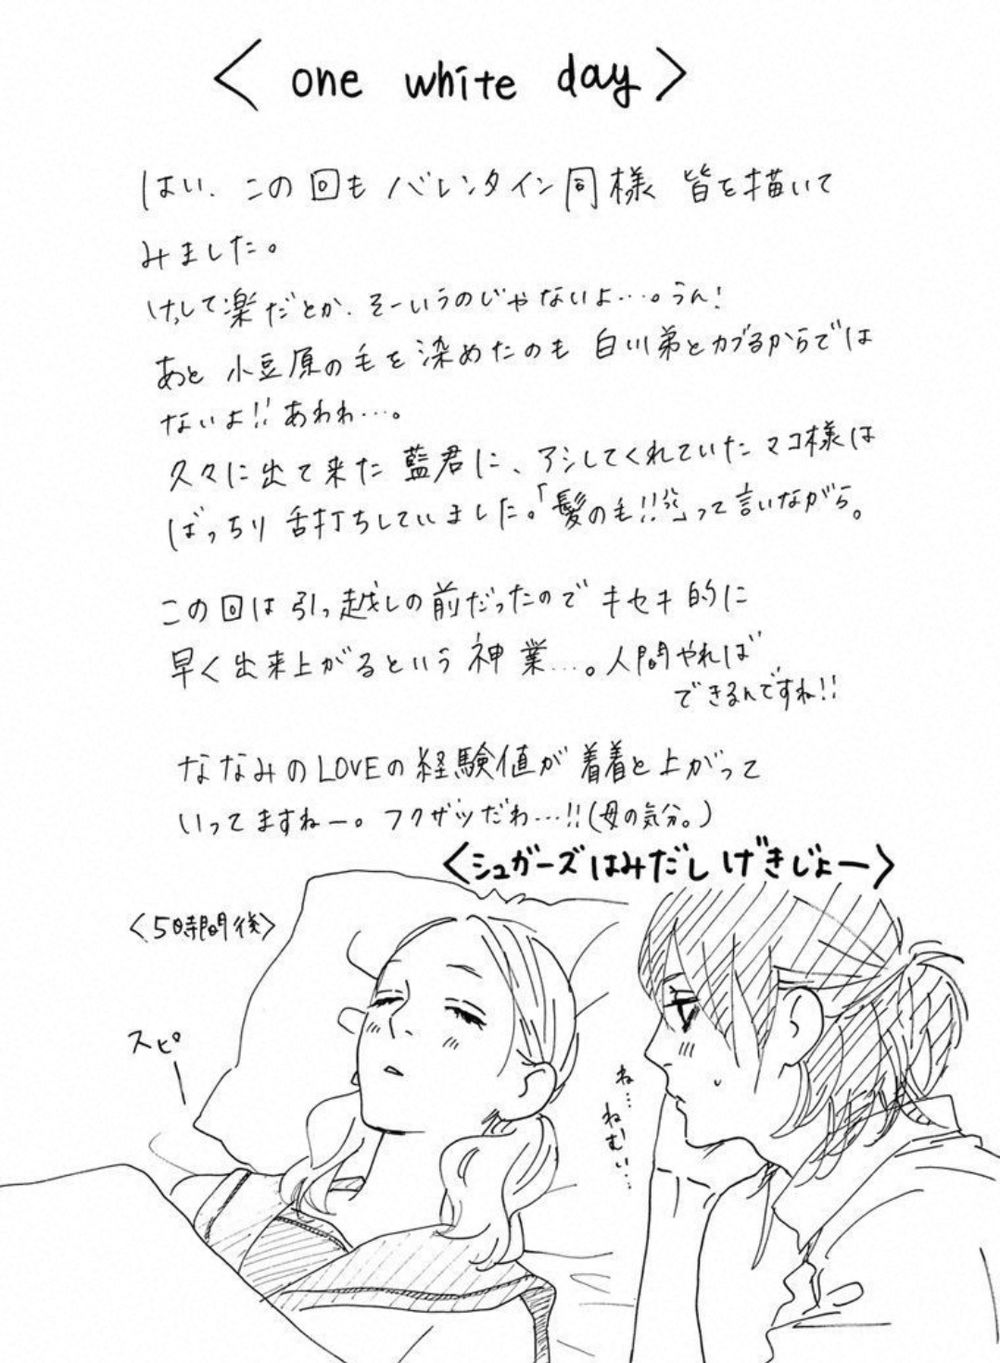 <one white day>
はい、この回も バレンタイン同様 皆を描いて
みました。
けっして楽だとか、そーいうのじゃないよ…。うん!
あと 小豆原の毛を染めたのも 白川弟とカブるからでは
ないよ!!あわわ…。
久々に出て来た 藍君に、アシしてくれていた マコ様は
ばっちり 舌打ちしていました。「髪の毛!!」って言いながら。
この回は 引っ越しの前だったので キセキ的に
早く出来上がるという 神業…。人間やれば
できるんですね!!
ななみのLOVEの経験値が 着着と上がって
いってますねー。フクザツだわ…!!(母の気分。)
<シュガーズはみだし げきじょー>
<5時間後>
スピ
ね…
ねむい…